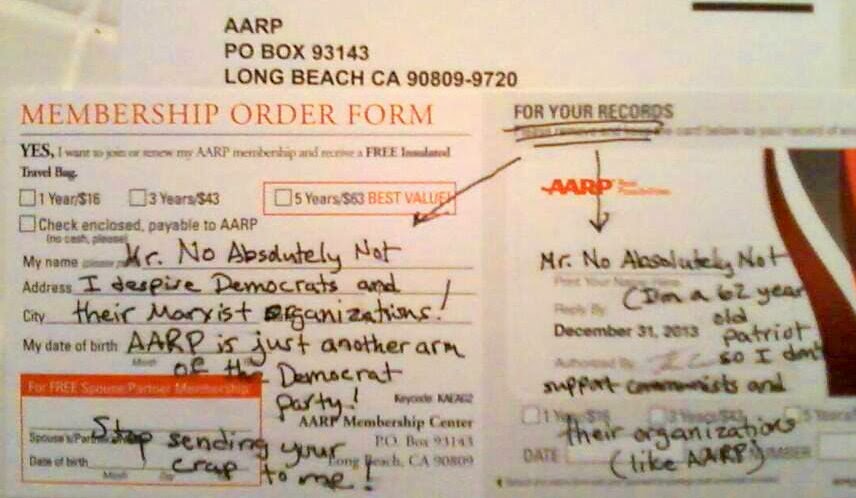 AARP
PO BOX 93143
LONG BEACH CA 90809-9720
MEMBERSHIP ORDER FORM
YES, I want to join or renew my AARP membership and receive a FREE Insulated
Travel Bag.
1 Year/$16 3 Years/$43 5 Years/$63 BEST VALUE!
Check enclosed, payable to AARP
(no cash, please)
My name Mr. No Absolutely Not
Address I despise Democrats and
City their Marxist Organizations!
My date of birth AARP is just another arm
Month
of the Democrat
For FREE Spouse/Partner Membership
party!
Keycode KAEAG2
AARP Membership Center
Stop sending your
P.O. Box 93143
Spouse's/Partner
Long Beach, CA 90809
Date of birth crap to me!
Month Day
FOR YOUR RECORDS
AARP Real Possibilities
Mr. No Absolutely Not
Print Your Name
(I'm a 62 year
Reply By
old
December 31, 2013 patriot
Authorized By so I don't
support communists and
1 Year/$16 3 Years/$43 5 Years/
their organizations
DATE NUMBER
(like AARP)